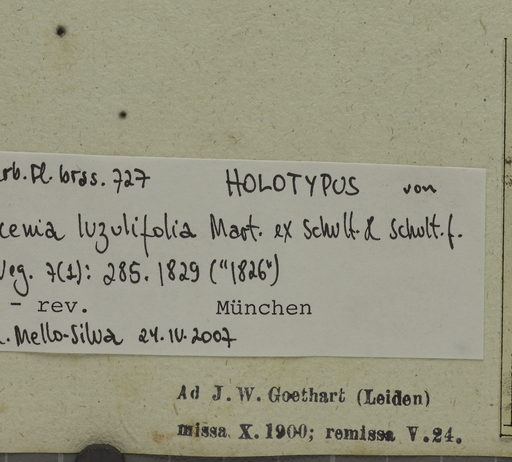 rb. Fl. bras. 727 HOLOTYPUS von
cenia luzulifolia Mart. ex Schult. & Schult. f.
Veg. 7(1): 285. 1829 ("1826")
- rev. München
. Mello-Silva 24.IV.2007
Ad J. W. Goethart (Leiden)
missa X. 1900; remissa V.24.